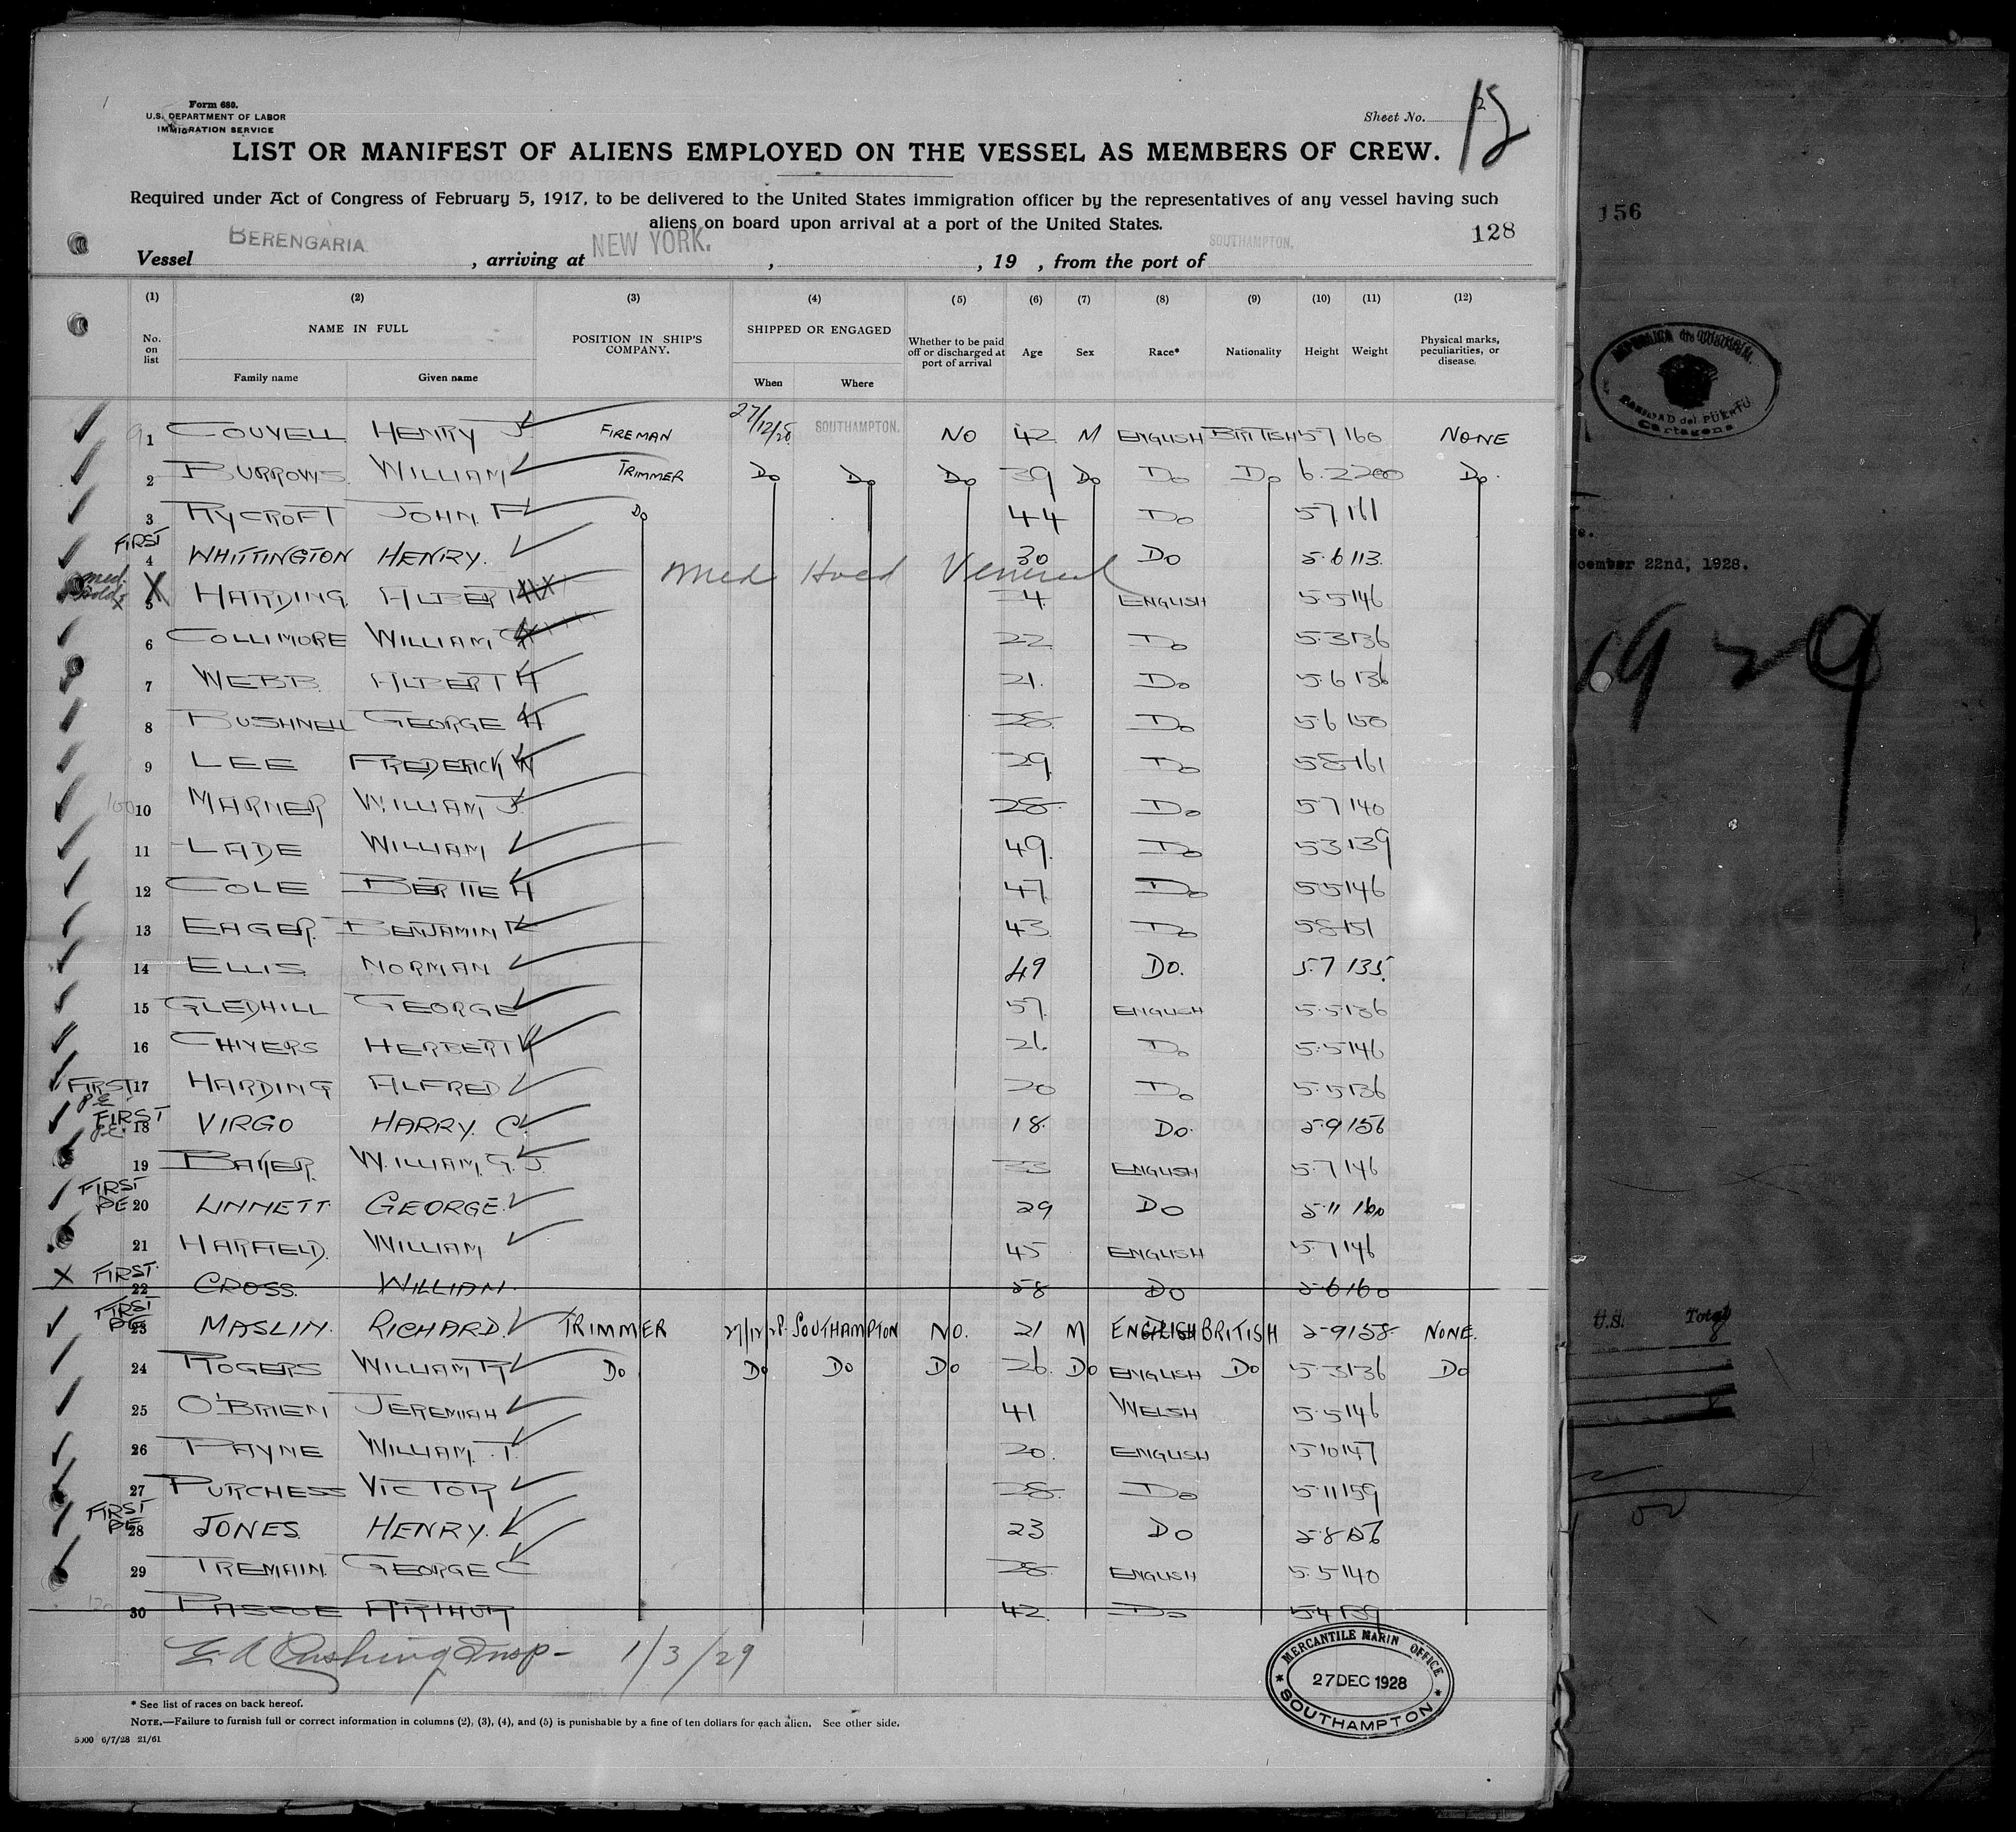 Form 680.
U.S. DEPARTMENT OF LABOR
IMMIGRATION SERVICE
Sheet No. 12
LIST OR MANIFEST OF ALIENS EMPLOYED ON THE VESSEL AS MEMBERS OF CREW.
Required under Act of Congress of February 5, 1917, to be delivered to the United States immigration officer by the representatives of any vessel having such
aliens on board upon arrival at a port of the United States.
128
Vessel BERENGARIA, arriving at NEW YORK. , , 19 , from the port of SOUTHAMPTON.
(1) (2) (3) (4) (5) (6) (7) (8) (9) (10) (11) (12)
No. on list NAME IN FULL Family name Given name POSITION IN SHIP'S COMPANY. SHIPPED OR ENGAGED When Where Whether to be paid off or discharged at port of arrival Age Sex Race* Nationality Height Weight Physical marks, peculiarities, or disease.
1 COUVELL HENRY J FIREMAN 27/12/28 SOUTHAMPTON. NO 42 M ENGLISH BRITISH 57 160 NONE
2 BURROWS WILLIAM TRIMMER Do Do Do 39 Do Do Do 6.2 200 Do.
3 RYCROFT JOHN. F Do 44 Do 57 161
FIRST 4 WHITTINGTON HENRY. 30 Do 5.6 113.
Med Hold Venereal
med. hold x X 5 HARDING ALBERT 34 ENGLISH 5.5 146
6 COLLIMORE WILLIAM 22 Do 5.3 136
7 WEBB. ALBERT H 21. Do 5.6 136
8 BUSHNELL GEORGE H 28 Do 5.6 150
9 LEE FREDERICK W 29 Do 58 161
10 MARNER WILLIAM J. 28 Do 57 140
11 LADE WILLIAM 49. Do 53 139
12 COLE BERTIE H 47 Do 55 146
13 EAGER. BENJAMIN F 43 Do 58 151
14 ELLIS NORMAN 49 DO. 5.7 135.
15 GLEDHILL GEORGE 57. ENGLISH 5.5 136
16 CHIVERS HERBERT W 26 Do 5.5 146
FIRST PE 17 HARDING ALFRED 20 Do 5.5 136
FIRST P.E. 18 VIRGO HARRY. C. 18. Do. 5-9 156
19 BAKER. WILLIAM. G. J 33 ENGLISH 5.7 146
FIRST PE 20 LINNETT. GEORGE. 29 DO 5-11 160
21 HARFIELD. WILLIAM 45 ENGLISH 5.7 146
X FIRST. 22 CROSS. WILLIAM. 58 DO 5-6 160
FIRST PE 23 MASLIN. RICHARD. TRIMMER 27/12/28. SOUTHAMPTON NO. 21 M ENGLISH BRITISH 5-9 158 NONE.
24 ROGERS WILLIAM R Do Do Do Do 26. Do ENGLISH Do 5.3 136 Do
25 O'BRIEN JEREMIAH 41 WELSH 5.5 146
26 PAYNE WILLIAM. T. 20. ENGLISH 5 10 147
27 PURCHESS VICTOR 28. Do 5.11 159
FIRST PE 28 JONES. HENRY. 23 DO 5-8 156
29 TREMAIN. GEORGE C 28 ENGLISH 5.5 140
30 PASCOE ARTHUR 42. Do 5.4 139
E A Cushing Insp - 1/3/29
MERCANTILE MARIN OFFICE
27 DEC 1928
SOUTHAMPTON
* See list of races on back hereof.
NOTE.—Failure to furnish full or correct information in columns (2), (3), (4), and (5) is punishable by a fine of ten dollars for each alien. See other side.
5000 6/7/28 21/61
156
Cartagena
22nd, 1928.
1929
U.S. Total
8